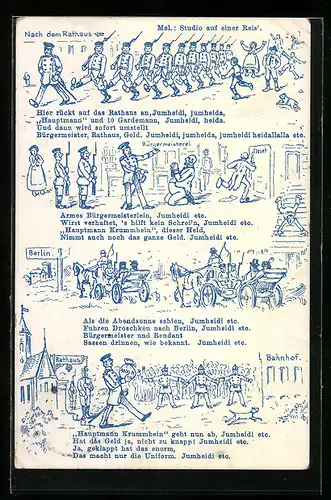 Nach dem Rathaus
Mel.: Studio auf einer Reis'.
Hier rückt auf das Rathaus an, Jumheidi, jumheida,
„Hauptmann" und 10 Gardemann, Jumheidi, heida.
Und dann wird sofort umstellt
Bürgermeister, Rathaus, Geld. Jumheidi, jumheida, jumheidi heidallalla etc.
Bürgermeisterei
Closet
Armes Bürgermeisterlein, Jumheidi etc.
Wirst verhaftet, 's hilft kein Schrei'n, Jumheidi etc.
„Hauptmann Krummbein", dieser Held,
Nimmt auch noch das ganze Geld. Jumheidi etc.
Berlin.
Als die Abendsonne schien, Jumheidi etc.
Fuhren Droschken nach Berlin, Jumheidi etc.
Bürgermeister und Rendant
Sassen drinnen, wie bekannt. Jumheidi etc.
Rathaus
Bahnhof.
„Hauptmann Krummbein" geht nun ab, Jumheidi etc.
Hat das Geld ja, nicht zu knapp! Jumheidi etc.
Ja, geklappt hat das enorm,
Das macht nur die Uniform. Jumheidi etc.